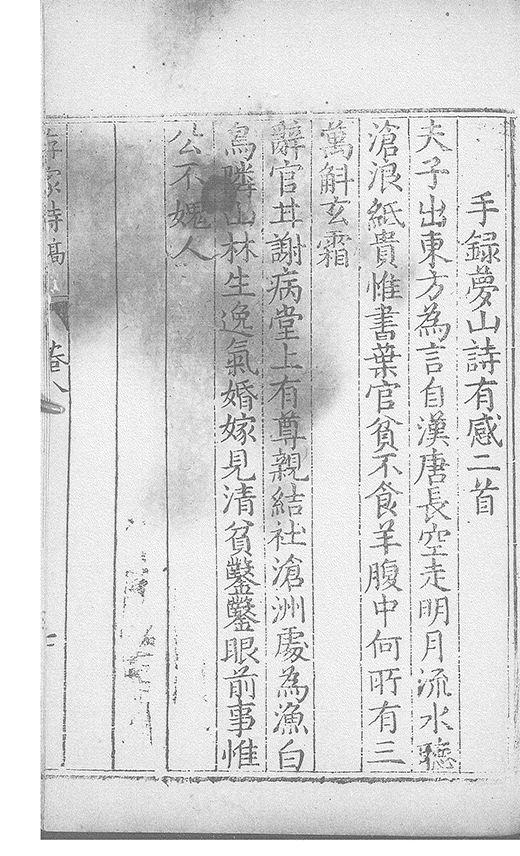 手録夢山詩有感二首
夫子出東方為言自漢唐長空走明月流水聽
滄浪紙貴惟書葉官貧不食羊腹中何所有三
萬斛玄霜
辭官幷謝病堂上有尊親結社滄洲處為漁白
鳥隣山林生逸氣婚嫁見清貧鑿鑿眼前事惟
公不媿人
家詩稿
卷八